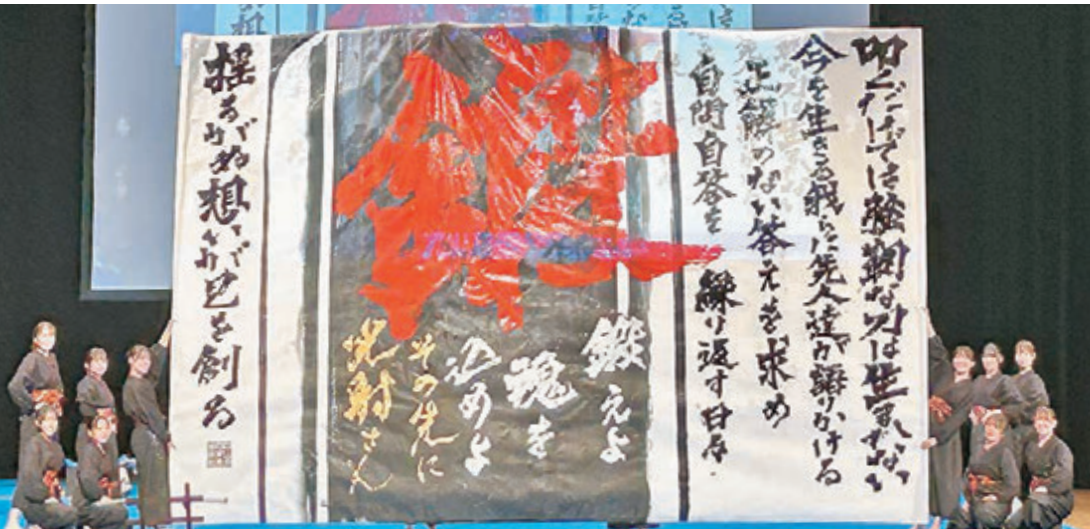 叩くだけでは強靭な刀は生まれない
今を生きる我らに先人達が語りかける
正解のない答えを求め
自問自答を繰り返す日々
鍛えよ
魂を
込めよ
その先に
光射さん
揺るがぬ想いが己を創る